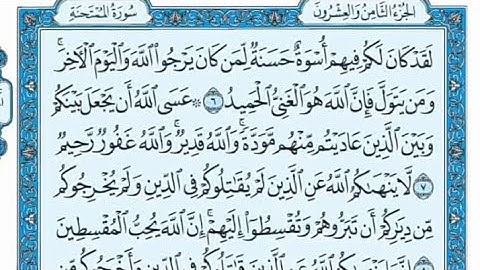 الجزء الثامن والعشرون سورة الممتحنة
لَقَدْ كَانَ لَكُمْ فِيهِمْ أُسْوَةٌ حَسَنَةٌ لِّمَن كَانَ يَرْجُوا۟ ٱللَّهَ وَٱلْيَوْمَ ٱلْأَخِرَ ۚ
وَمَن يَتَوَلَّ فَإِنَّ ٱللَّهَ هُوَ ٱلْغَنِىُّ ٱلْحَمِيدُ ٦ ۞ عَسَى ٱللَّهُ أَن يَجْعَلَ بَيْنَكُمْ
وَبَيْنَ ٱلَّذِينَ عَادَيْتُم مِّنْهُم مَّوَدَّةً ۚ وَٱللَّهُ قَدِيرٌ ۚ وَٱللَّهُ غَفُورٌ رَّحِيمٌ
٧ لَّا يَنْهَىٰكُمُ ٱللَّهُ عَنِ ٱلَّذِينَ لَمْ يُقَٰتِلُوكُمْ فِى ٱلدِّينِ وَلَمْ يُخْرِجُوكُم
مِّن دِيَٰرِكُمْ أَن تَبَرُّوهُمْ وَتُقْسِطُوٓا۟ إِلَيْهِمْ ۚ إِنَّ ٱللَّهَ يُحِبُّ ٱلْمُقْسِطِينَ